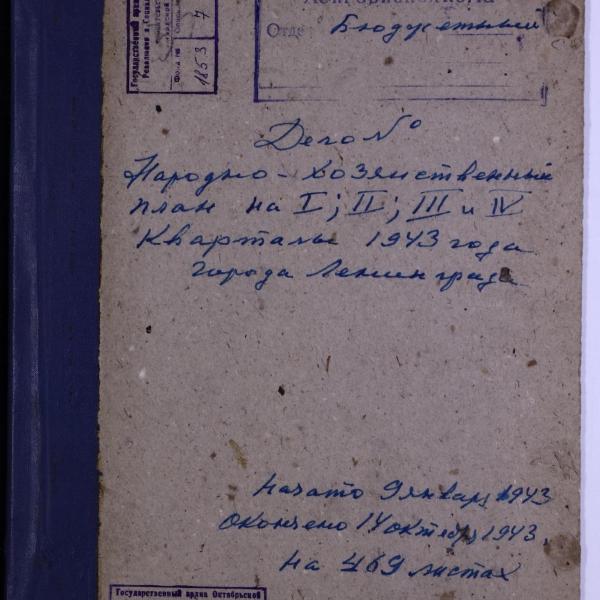 Государственный
Революции и Социал
Фонд №
Опись
1853
7
Ленгорисполкома
Отде Бюджетный
Дело №
Народно-хозяйственный
план на I; II; III и IV
кварталы 1943 года
города Ленинграда
Начато 9 январ, 1943
Окончено 14 октября, 1943.
на 469 листах
Государственный архив Октябрьской